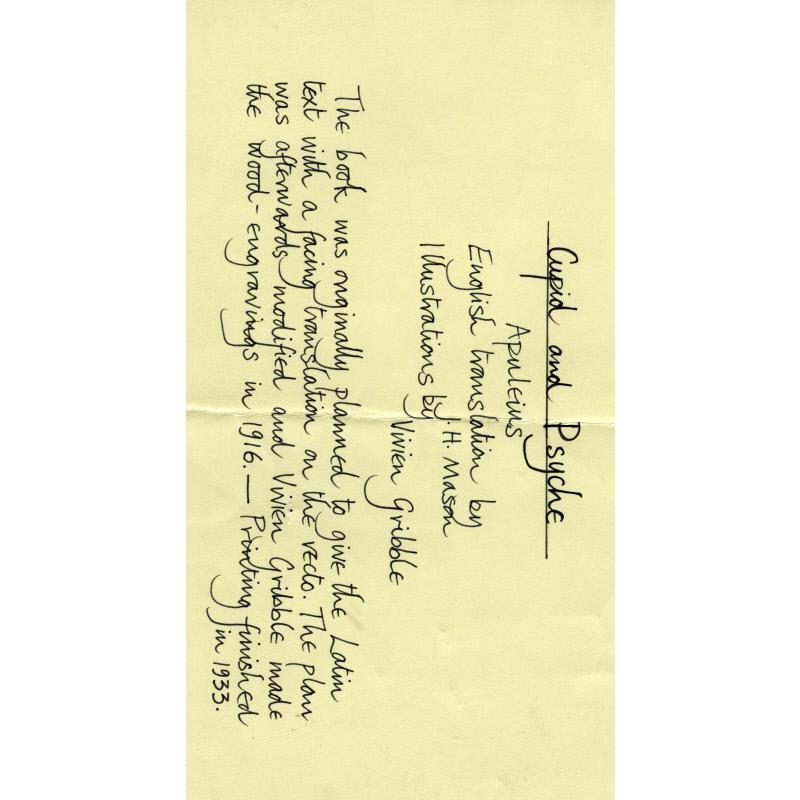 Cupid and Psyche
Apuleius
English translation by
H. Mason
Illustrations by
Vivien Gribble
The book was originally planned to give the Latin
text with a facing translation on the recto. The plan
was afterwards modified and Vivien Gribble made
the wood-engravings in 1916. — Printing finished
in 1933.